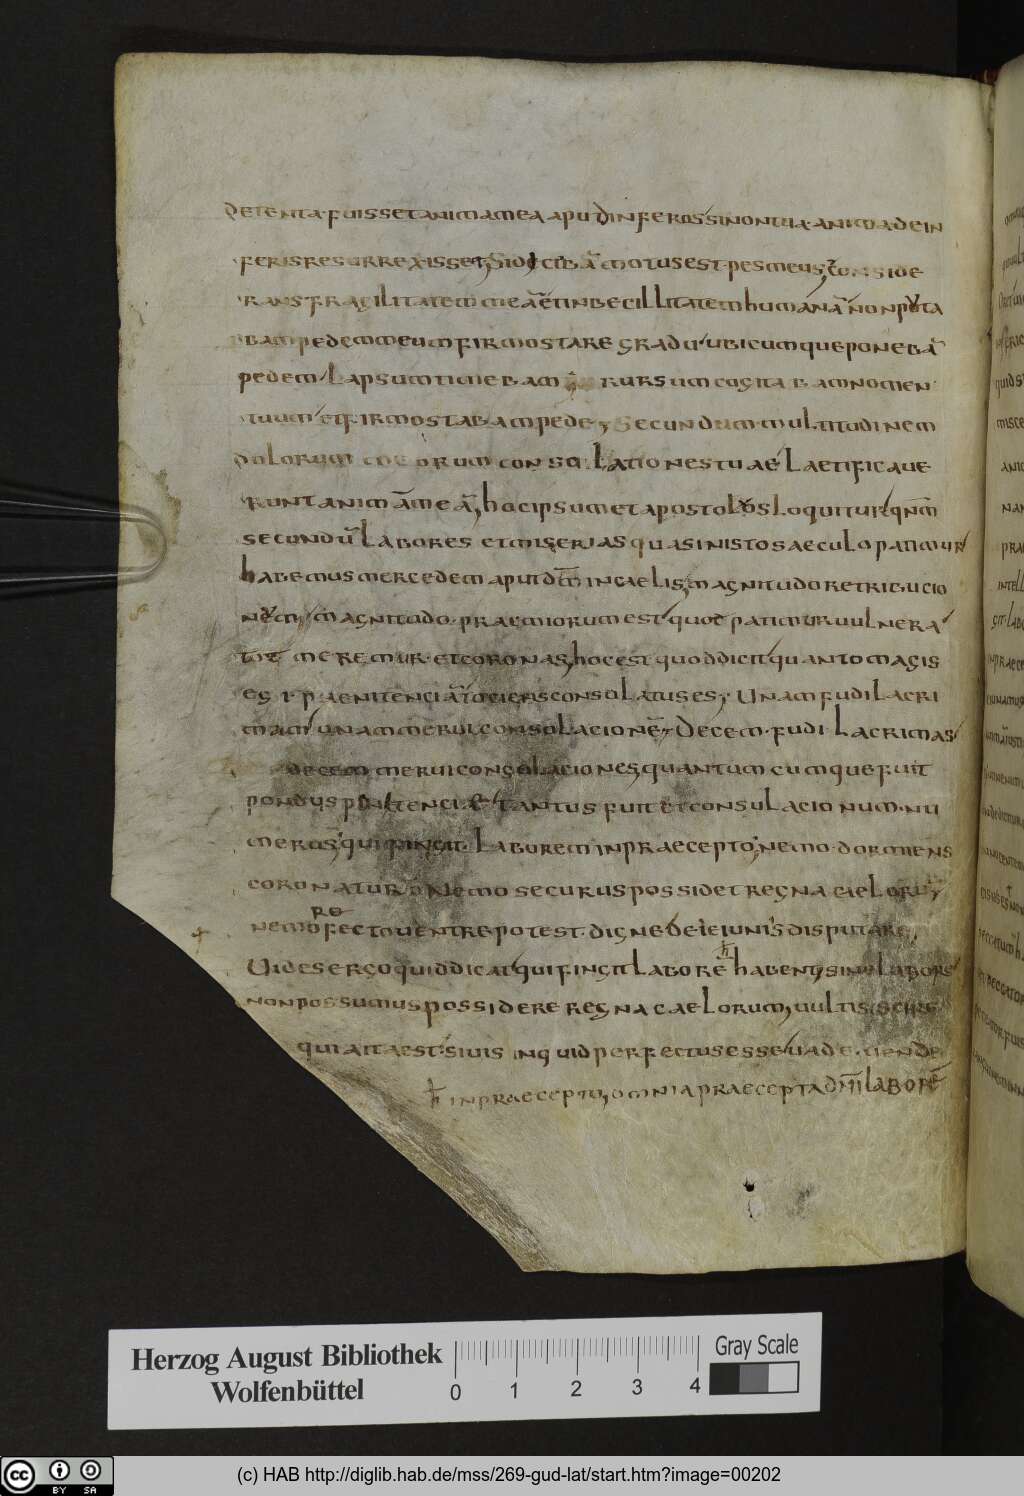 detenta· fuisset anima mea apud inferos si non tua· anima de in
feris resurrexisset, Sidicibā motus est· pes meus, conside
rans fragilitatem meā et inbecillitatem humanā non puta
bam pedem meum firmo stare gradu ubicumque ponebā
pedem lapsum timebam rursum cogitabam nomen
tuum et firmo stabam pede, Secundum multitudinem
dolorum meorum consolationes tuae Laetificaue
runt animā meā, hoc ipsum et apostolus loquitur qnm̄
secundū Labores et miserias quas in isto saeculo patimur
habemus mercedem aput dm̄ in caelis, magnitudo retribucio
num, magnitudo· praemiorum est quot patimur uulnera
tot meremur· et coronas, hoc est quod dicit quanto magis
eg paenitenciā tociens consolatus es, Unam fudi Lacri
mam unam merui consolacionē, Decem· fudi· Lacrimas
decem merui consolaciones, quantumcumque fuit
pondus penitenciae tantus fuit et consulacionum· nu
merus, qui fingit· Laborem in praecepto, nemo· dormiens
coronatur nemo securus possidet regna caelorū,
nemo refecto uentre potest· digne de ieiuniis disputare,
Uides ergo quid dicat qui fingit Laborē habent, sine labore
non possumus possidere regna caelorum, uultis scire
quia ita est· si uis inquid perfectus esse uade· uende
in praecepto, omnia praecepta dn̄i laborē
ro
h̄
h̄
Herzog August Bibliothek
Wolfenbüttel
0 1 2 3 4
Gray Scale
cc BY SA
(c) HAB http://diglib.hab.de/mss/269-gud-lat/start.htm?image=00202